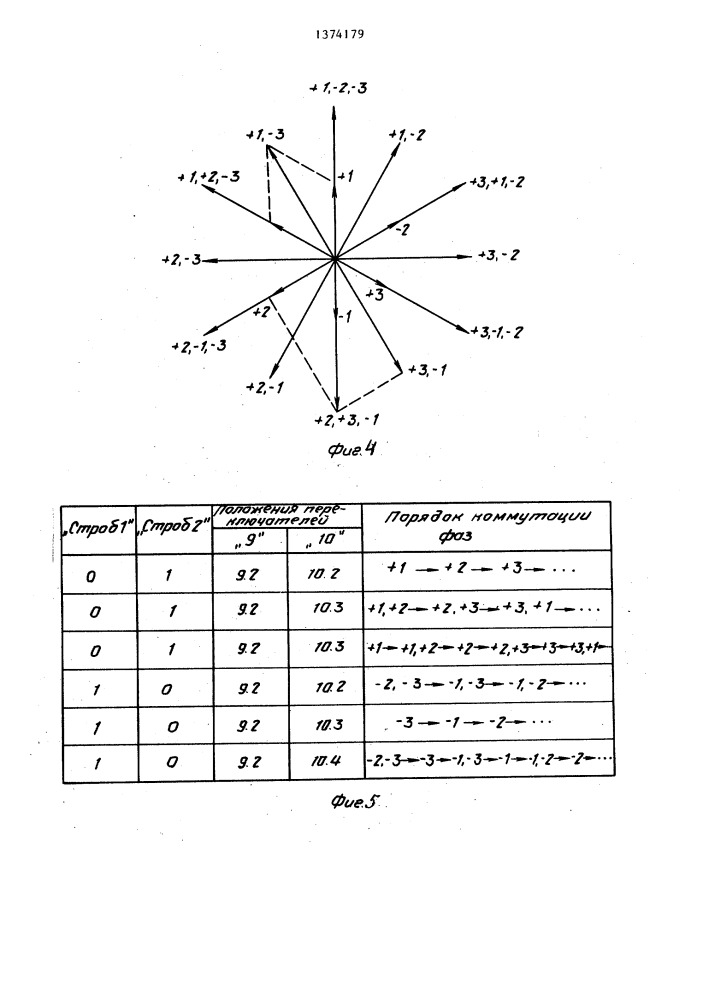 1374179
+1,-2,-3
+1,-3
+1,-2
+1,+2,-3
+1
+3,+1,-2
-2
+2,-3
+3,-2
+3
+2
-1
+2,-1,-3
+3,-1,-2
+3,-1
+2,-1
+2,+3,-1
Фиг.4
„Строб1" „Строб2" Положения пере-
ключателей Порядок коммутации
фаз
„9" „10"
0 1 9.2 10.2 +1 → +2 → +3 → ...
0 1 9.2 10.3 +1,+2 → +2,+3 → +3,+1 → ...
0 1 9.2 10.3 +1→+1,+2→+2→+2,+3→+3→+3,+1→
1 0 9.2 10.2 -2,-3 → -1,-3 → -1,-2 → ...
1 0 9.2 10.3 -3 → -1 → -2 → ...
1 0 9.2 10.4 -2,-3→-3→-1,-3→-1→-1,-2→-2→...
Фиг.5